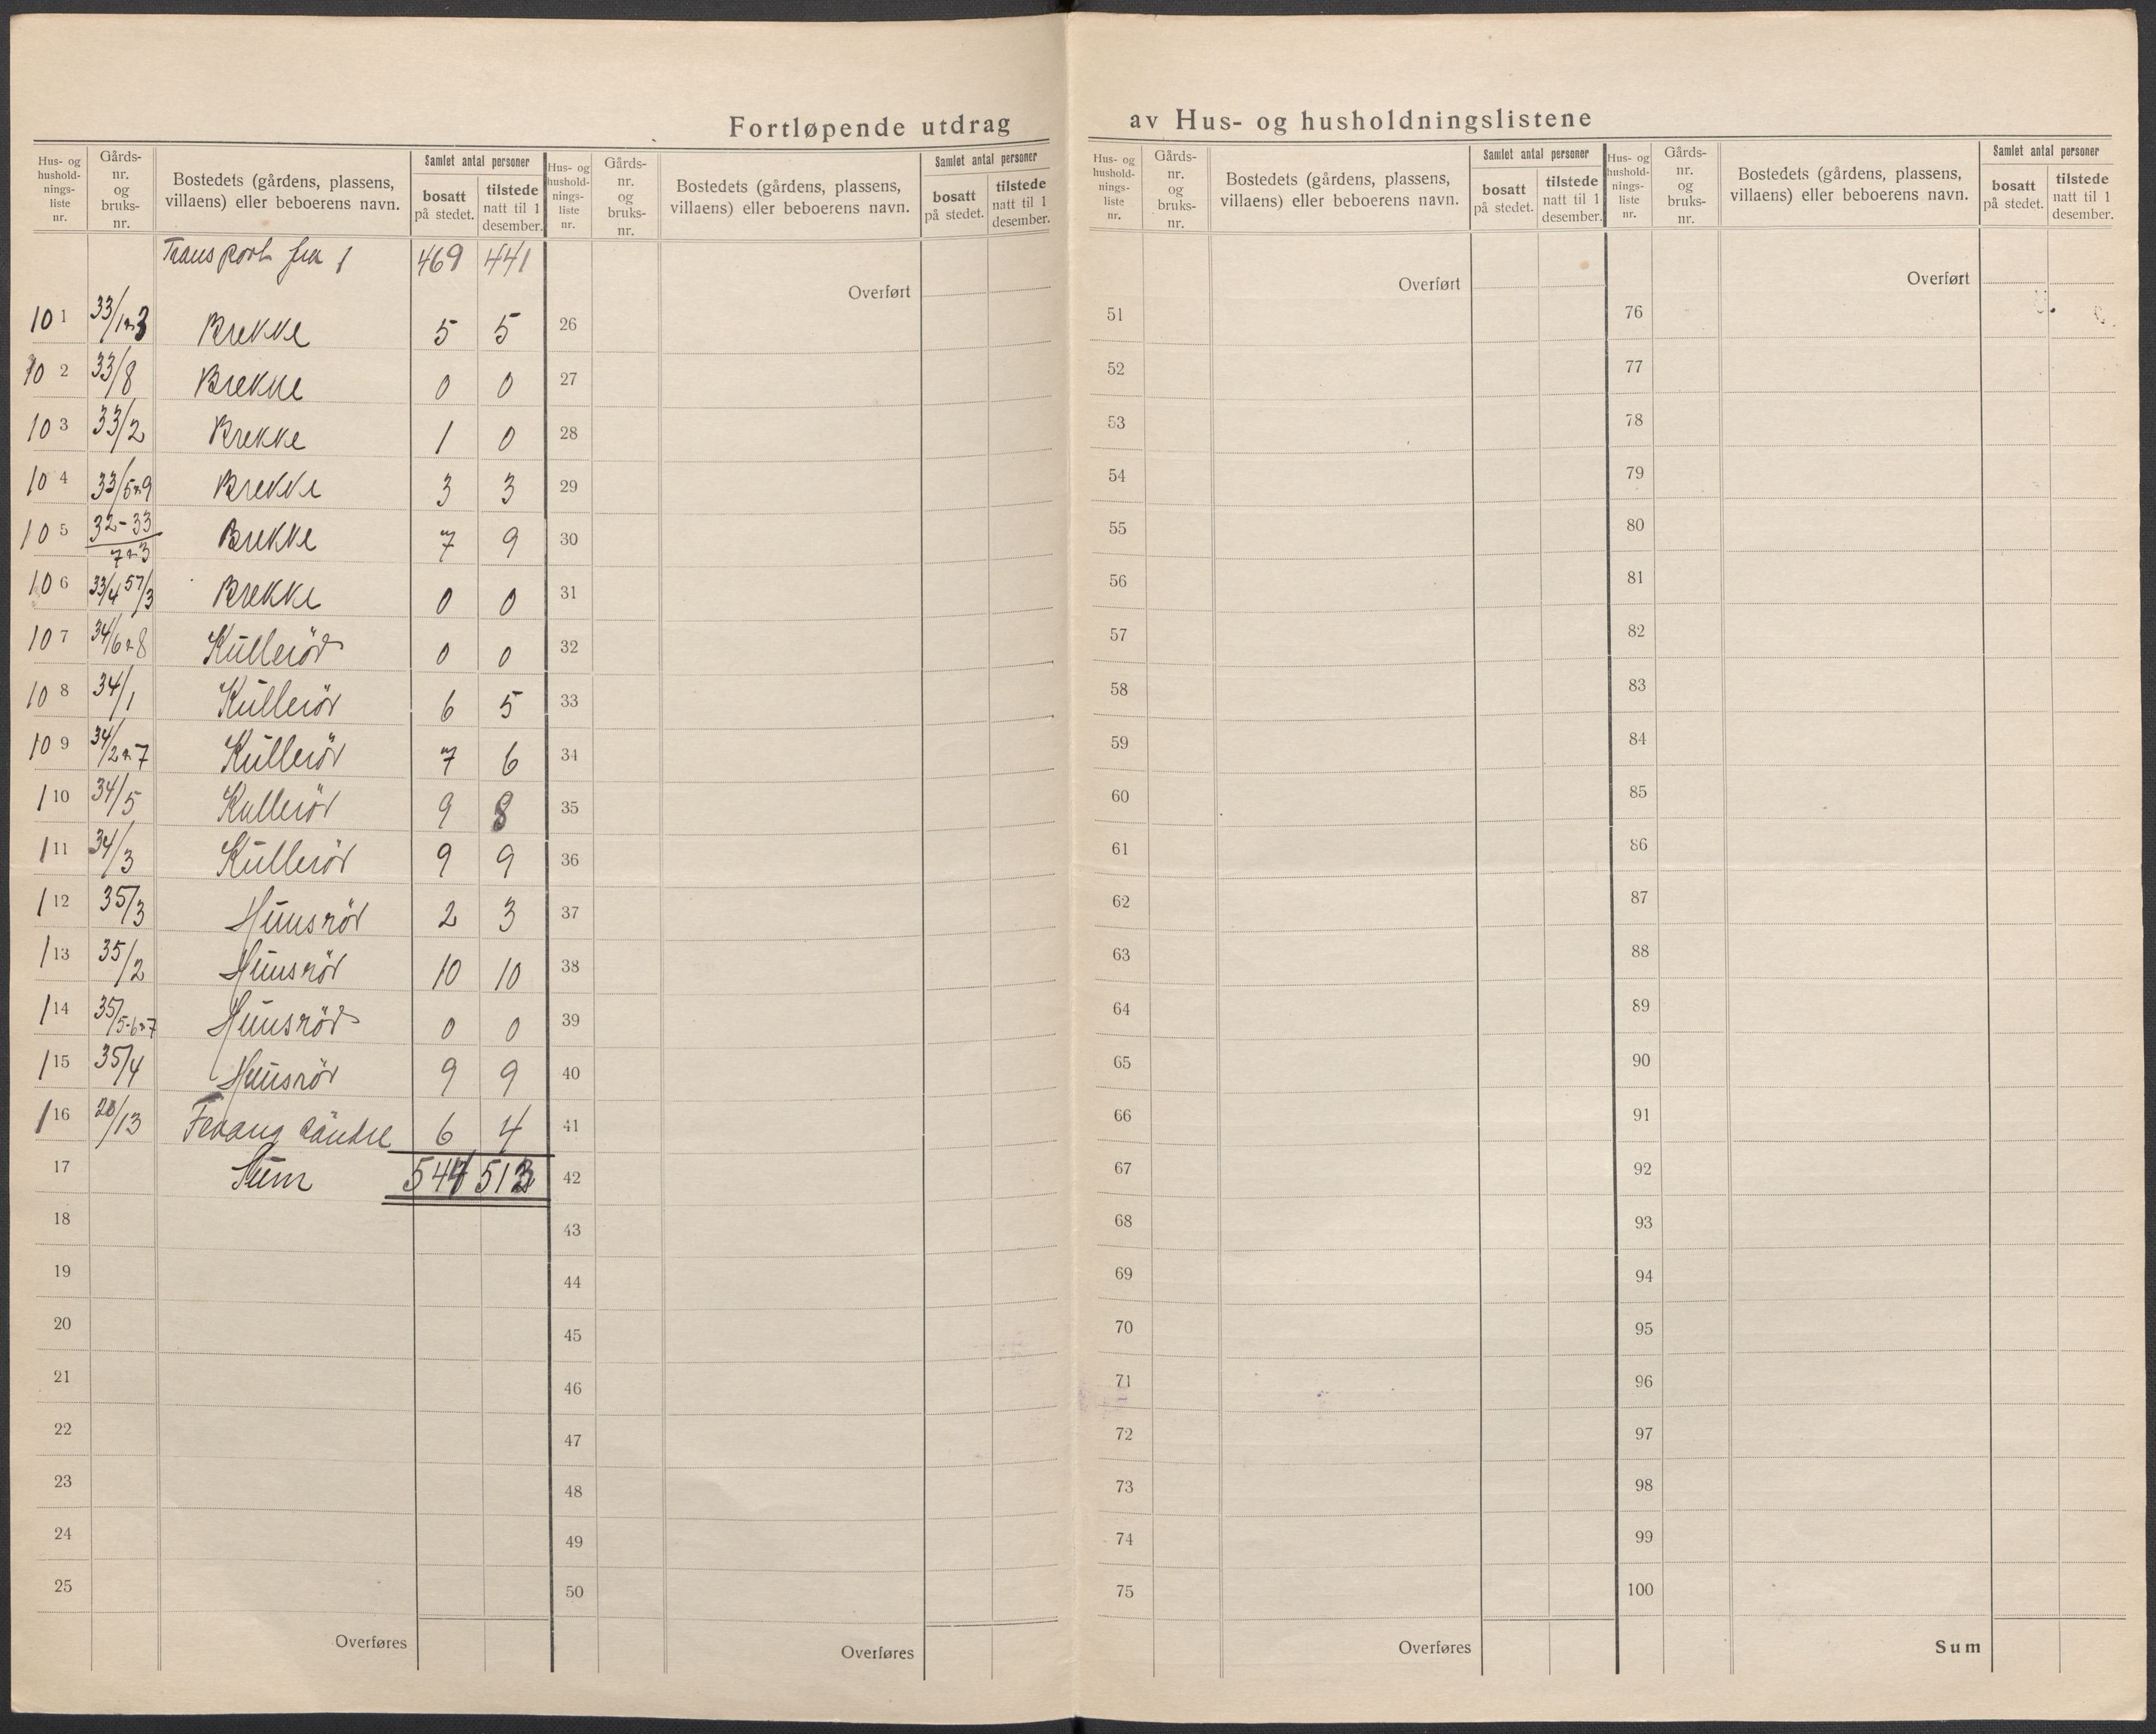 Fortløpende utdrag av Hus- og husholdningslistene
Hus- og husholdnings-liste nr. Gårds-nr. og bruks-nr. Bostedets (gårdens, plassens, villaens) eller beboerens navn. Samlet antal personer bosatt på stedet. tilstede natt til 1 desember.
Transport fra 1 469 441
101 33/1 & 3 Brekke 5 5
102 33/8 Brekke 0 0
103 33/2 Brekke 1 0
104 33/5 & 9 Brekke 3 3
105 32-33/7 & 3 Brekke 7 9
106 33/4 57/3 Brekke 0 0
107 34/6 & 8 Kulleröd 0 0
108 34/1 Kulleröd 6 5
109 34/2 & 7 Kulleröd 7 6
110 34/5 Kulleröd 9 8
111 34/3 Kulleröd 9 9
112 35/3 Hunsröd 2 3
113 35/2 Hunsröd 10 10
114 35/5-6 & 7 Hunsröd 0 0
115 35/4 Hunsröd 9 9
116 20/13 Fevang søndre 6 4
17 Sum 513
18
19
20
21
22
23
24
25
Overføres
Hus- og husholdnings-liste nr. Gårds-nr. og bruks-nr. Bostedets (gårdens, plassens, villaens) eller beboerens navn. Samlet antal personer bosatt på stedet. tilstede natt til 1 desember.
Overført
26
27
28
29
30
31
32
33
34
35
36
37
38
39
40
41
42
43
44
45
46
47
48
49
50
Overføres
Hus- og husholdnings-liste nr. Gårds-nr. og bruks-nr. Bostedets (gårdens, plassens, villaens) eller beboerens navn. Samlet antal personer bosatt på stedet. tilstede natt til 1 desember.
Overført
51
52
53
54
55
56
57
58
59
60
61
62
63
64
65
66
67
68
69
70
71
72
73
74
75
Overføres
Hus- og husholdnings-liste nr. Gårds-nr. og bruks-nr. Bostedets (gårdens, plassens, villaens) eller beboerens navn. Samlet antal personer bosatt på stedet. tilstede natt til 1 desember.
Overført
76
77
78
79
80
81
82
83
84
85
86
87
88
89
90
91
92
93
94
95
96
97
98
99
100
Sum